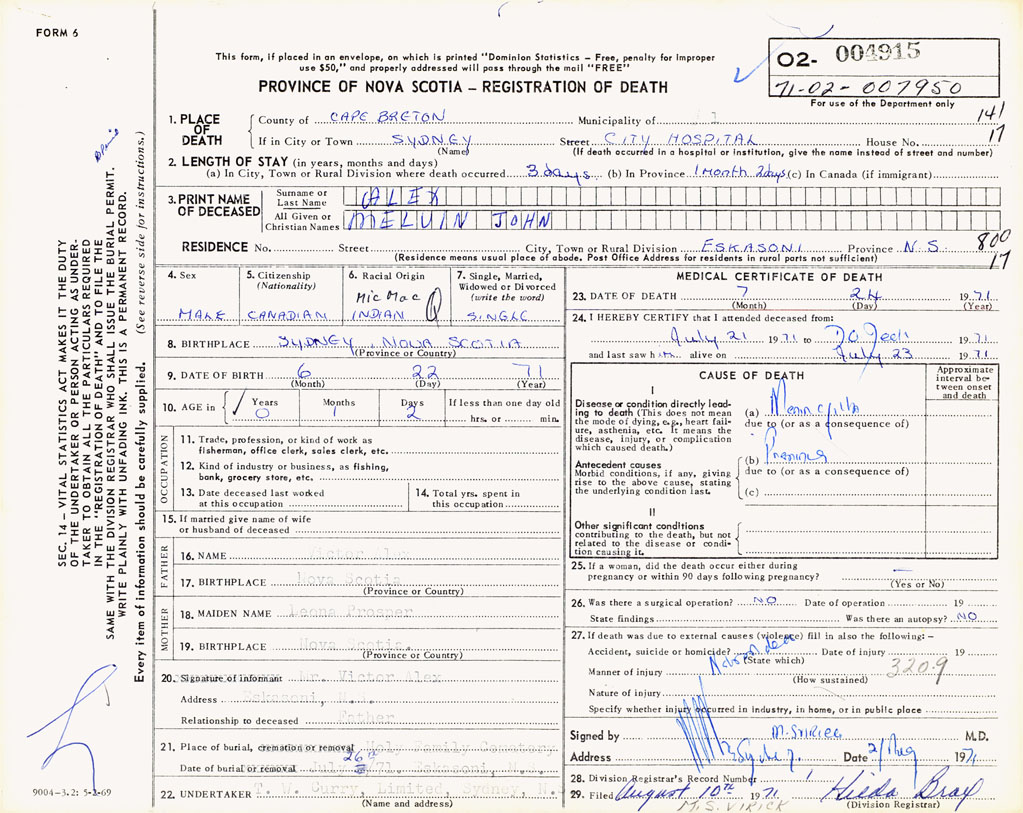 FORM 6
This form, if placed in an envelope, on which is printed "Dominion Statistics – Free, penalty for improper
use $50," and properly addressed will pass through the mail "FREE"
PROVINCE OF NOVA SCOTIA – REGISTRATION OF DEATH
02- 004915
71-02-007950
For use of the Department only
141
17
1. PLACE OF DEATH
County of CAPE BRETON Municipality of
If in City or Town SYDNEY Street CITY HOSPITAL House No.
(Name) (If death occurred in a hospital or institution, give the name instead of street and number)
2. LENGTH OF STAY (in years, months and days)
(a) In City, Town or Rural Division where death occurred 3 days (b) In Province 1 Month 2 days (c) In Canada (if immigrant)
3. PRINT NAME OF DECEASED
Surname or Last Name ALEX
All Given or Christian Names MELVIN JOHN
RESIDENCE No. Street City, Town or Rural Division ESKASONI Province N.S. 800
(Residence means usual place of abode. Post Office Address for residents in rural parts not sufficient) 17
4. Sex
MALE
5. Citizenship (Nationality)
CANADIAN
6. Racial Origin
Mic Mac
INDIAN
7. Single, Married, Widowed or Divorced (write the word)
SINGLE
8. BIRTHPLACE SYDNEY, NOVA SCOTIA
(Province or Country)
9. DATE OF BIRTH 6 22 71
(Month) (Day) (Year)
10. AGE in Years 0 Months 1 Days 2 If less than one day old
hrs. or min.
OCCUPATION
11. Trade, profession, or kind of work as
fisherman, office clerk, sales clerk, etc.
12. Kind of industry or business, as fishing,
bank, grocery store, etc.
13. Date deceased last worked
at this occupation
14. Total yrs. spent in
this occupation
15. If married give name of wife
or husband of deceased
FATHER
16. NAME Victor Alex
17. BIRTHPLACE Nova Scotia
(Province or Country)
MOTHER
18. MAIDEN NAME Leona Prosper
19. BIRTHPLACE Nova Scotia
(Province or Country)
20. Signature of informant Mr. Victor Alex
Address Eskasoni, N.S.
Relationship to deceased Father
21. Place of burial, cremation or removal Holy Family Cemetery
Date of burial or removal July 26th 71. Eskasoni, N.S.
22. UNDERTAKER T. W. Curry, Limited, Sydney, N.S
(Name and address)
MEDICAL CERTIFICATE OF DEATH
23. DATE OF DEATH 7 24 1971
(Month) (Day) (Year)
24. I HEREBY CERTIFY that I attended deceased from:
July 21 1971 to
and last saw him alive on July 23 1971
CAUSE OF DEATH
Approximate interval between onset and death
I
Disease or condition directly leading to death (This does not mean the mode of dying, e.g., heart failure, asthenia, etc. It means the disease, injury, or complication which caused death.)
(a)
due to (or as a consequence of)
Antecedent causes
Morbid conditions, if any, giving rise to the above cause, stating the underlying condition last.
(b)
due to (or as a consequence of)
(c)
II
Other significant conditions
contributing to the death, but not related to the disease or condition causing it.
25. If a woman, did the death occur either during
pregnancy or within 90 days following pregnancy? –
(Yes or No)
26. Was there a surgical operation? NO Date of operation 19
State findings Was there an autopsy? NO
27. If death was due to external causes (violence) fill in also the following: –
Accident, suicide or homicide? Date of injury 19
(State which)
Manner of injury 320.9
(How sustained)
Nature of injury
Specify whether injury occurred in industry, in home, or in public place
Signed by M.D.
Address Date 2/Aug 1971
28. Division Registrar's Record Number
29. Filed August 10th 1971 Hilda Bray
(Division Registrar)
M.S. VIRICK
SEC. 14 – VITAL STATISTICS ACT MAKES IT THE DUTY
OF THE UNDERTAKER OR PERSON ACTING AS UNDER-
TAKER TO OBTAIN ALL THE PARTICULARS REQUIRED
IN THE "REGISTRATION OF DEATH" AND TO FILE THE
SAME WITH THE DIVISION REGISTRAR WHO SHALL ISSUE THE BURIAL PERMIT.
WRITE PLAINLY WITH UNFADING INK. THIS IS A PERMANENT RECORD.
Every item of information should be carefully supplied. (See reverse side for instructions.)
9004-3.2: 5-2-69